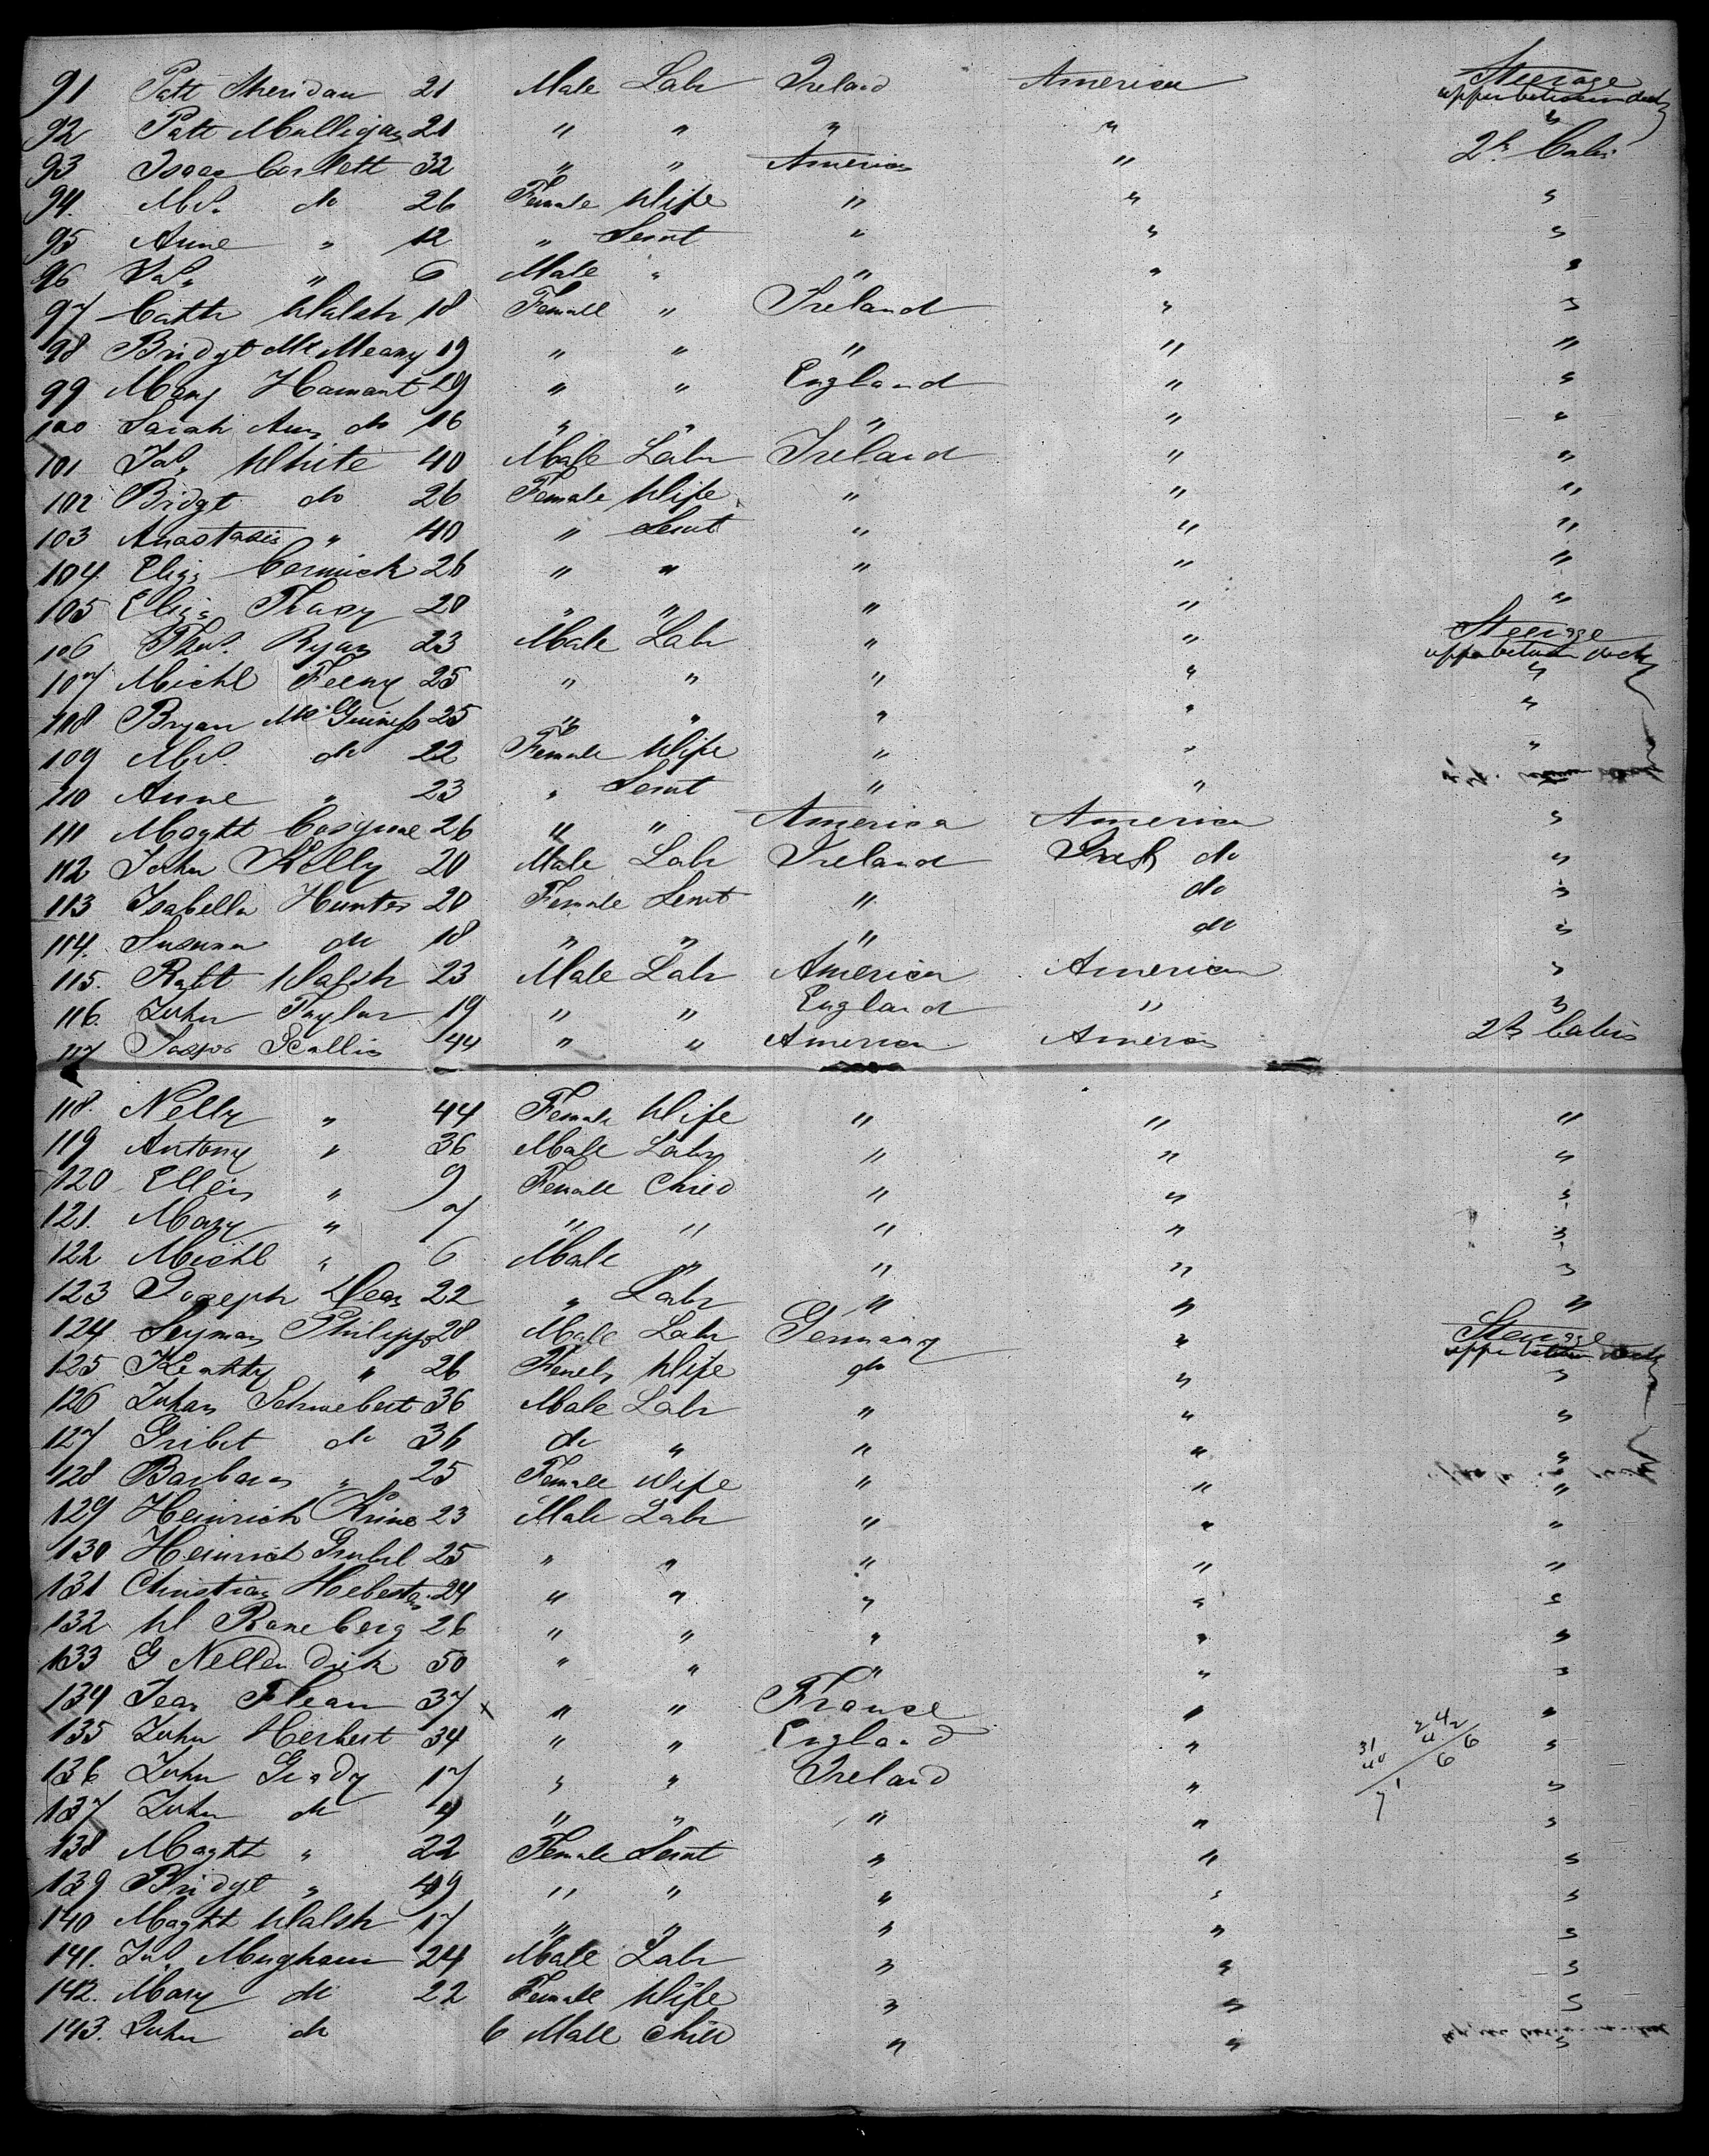 91 Patt Sheridan 21 Male Labr Ireland America Steerage
upper between decks
92 Patt Mulligan 21 " " " " "
93 Isaac Corlett 32 " " America " 2d Cabin
94. Mrs. do 26 Female Wife " " "
95 Anne " 12 " Servt " " "
96 Jas. " 6 Male " " " "
97 Cath Walsh 18 Female " Ireland " "
98 Bridgt McMeany 19 " " " " "
99 Mary Hamant 29 " " England " "
100 Sarah Ann do 16 " " " " "
101 Jas. White 40 Male Labr Ireland " "
102 Bridgt do 26 Female Wife " " "
103 Anastasia " 40 " Servt " " "
104. Eliza Cormick 26 " " " " "
105 Eliza Tracy 20 " " " " "
106 Thos. Ryan 23 Male Labr " " Steerage
upper between decks
107 Michl Feeny 25 " " " " "
108 Bryan McGuiness 25 " " " " "
109 Mrs. do 22 Female Wife " " "
110 Anne " 23 " Servt " "
111 Magtt Cosgrove 26 " " America America "
112 John Kelly 20 Male Labr Ireland do "
113 Isabella Hunter 20 Female Servt " do "
114. Susanna do 18 " " " do "
115. Robt Walsh 23 Male Labr America America "
116. John Taylor 19 " " England " "
117 Scallin 44 " " America America 2d Cabin
118. Nelly " 44 Female Wife " " "
119 Antony " 36 Male Labr " " "
120 Ellen " 9 Female Child " " "
121. Mary " 7 " " " " "
122 Michl " 6 Male " " " "
123 Joseph Dean 22 " Labr " " "
124. Seyman Philipp 28 Male Labr Germany " Steerage
upper between decks
125 " 26 Female Wife do " "
126 Johan Schwebert 36 Male Labr " " "
127 do 36 do " " " "
128 Barbara " 25 Female Wife " " "
129 Heinrich Krine 23 Male Labr " " "
130 Heinrich Grubel 25 " " " " "
131 Christian 24 " " " " "
132 W Raneberg 26 " " " " "
133 G Nellendick 50 " " " " "
134 Jean 37 x " " France " "
135 John Herbert 34 " " England " "
136 John Grady 17 " " Ireland " "
137 John do 4 " " " " "
138 Magtt " 22 Female Servt " " "
139. Bridgt " 49 " " " " "
140 Magtt Walsh 17 " " " " "
141. Jas. Mugham 24 Male Labr " " "
142. Mary do 22 Female Wife " " "
143. John do 6 Male Child " " "